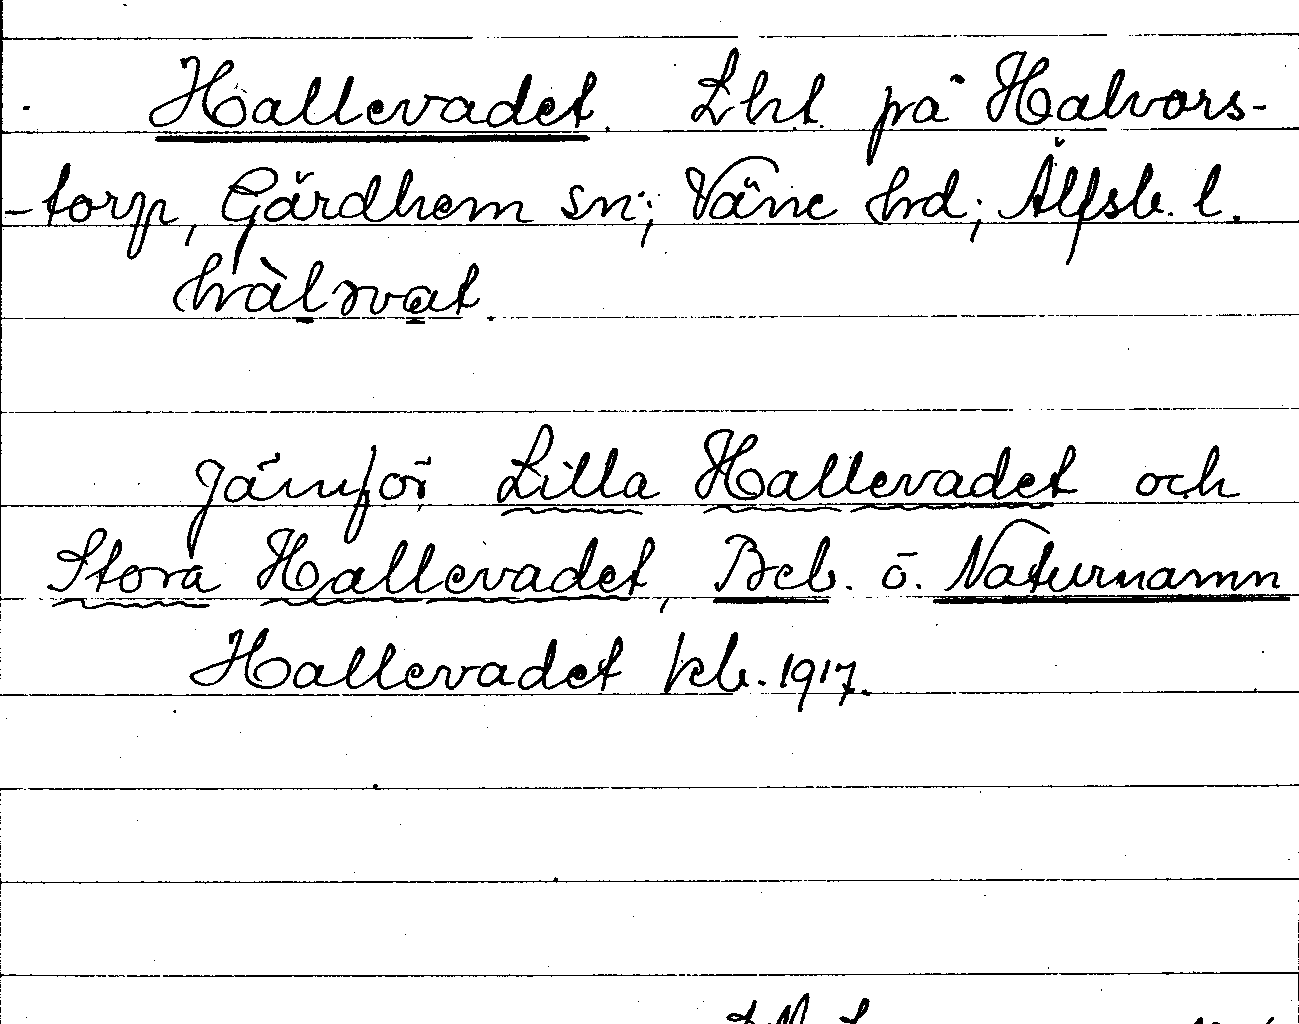 Hallevadet. Lht. på Halvors-
-torp, Gärdhem sn; Väne hrd; Älfsb. l.
hàlvat.
Jämför Lilla Hallevadet och
Stora Hallevadet, Beb. o. Naturnamn
Hallevadet kb. 1917.